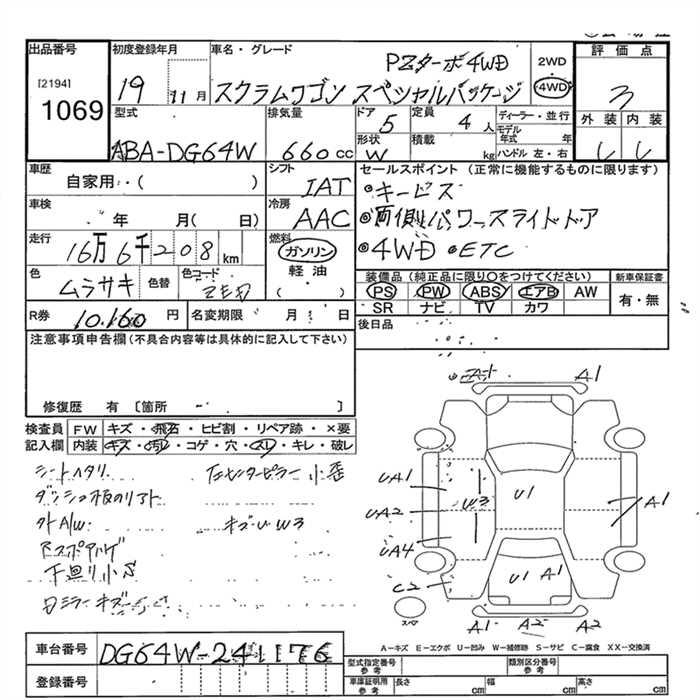 出品番号 初度登録年月 車名・グレード 評価点
[2194]
1069
19 11月
PZターボ4WD
スクラムワゴン スペシャルパッケージ
2WD
4WD
3
型式 排気量 ドア 定員 ディーラー・並行 外装 内装
ABA-DG64W 660cc 5 4人
モデル年式 年
形状 積載
W kg ハンドル 左・右
車歴 シフト セールスポイント(正常に機能するものに限ります)
自家用・( ) IAT
キービス
車検 冷房
年 月( 日) AAC
両側パワースライドドア
走行 燃料
16万6千208km ガソリン
4WD ETC
軽油
( )
色 色替 色コード
ムラサキ
装備品(純正品に限り〇をつけてください) 新車保証書
PS PW ABS エアB AW 有・無
SR ナビ TV カワ
R券 10.160円 名変期限 月 日
後日品
注意事項申告欄(不具合内容等は具体的に記入して下さい)
修復歴 有 [箇所 ]
検査員 FW キズ・飛石・ヒビ割・リペア跡・×要
記入欄 内装 キズ・汚レ・コゲ・穴・スレ・キレ・破レ
シートヘタリ 左センターピラー小歪
外A/W キズ・U W3
下廻り小S
A1
UA1 W3 U1 A1
UA2
UA4
C2 U1 A1
スペア
A1 A2 A2
A-キズ E-エクボ U-凹み W-補修跡 S-サビ C-腐食 XX-交換済
車台番号 DG64W-241176
登録番号
型式指定番号 参考 類別区分番号 参考
車庫証明用 参考 長さ cm 幅 cm 高さ cm